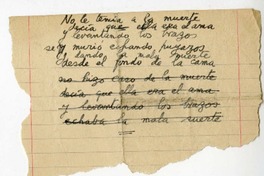 No le temía a la muerte
y decía que ella era dama
y levantando los brazos
se murió tirando
dando la mala suerte
desde el fondo de la cama
no hizo caso de la muerte
decía que ella era el ama
y levantando los brazos
echaba la mala suerte